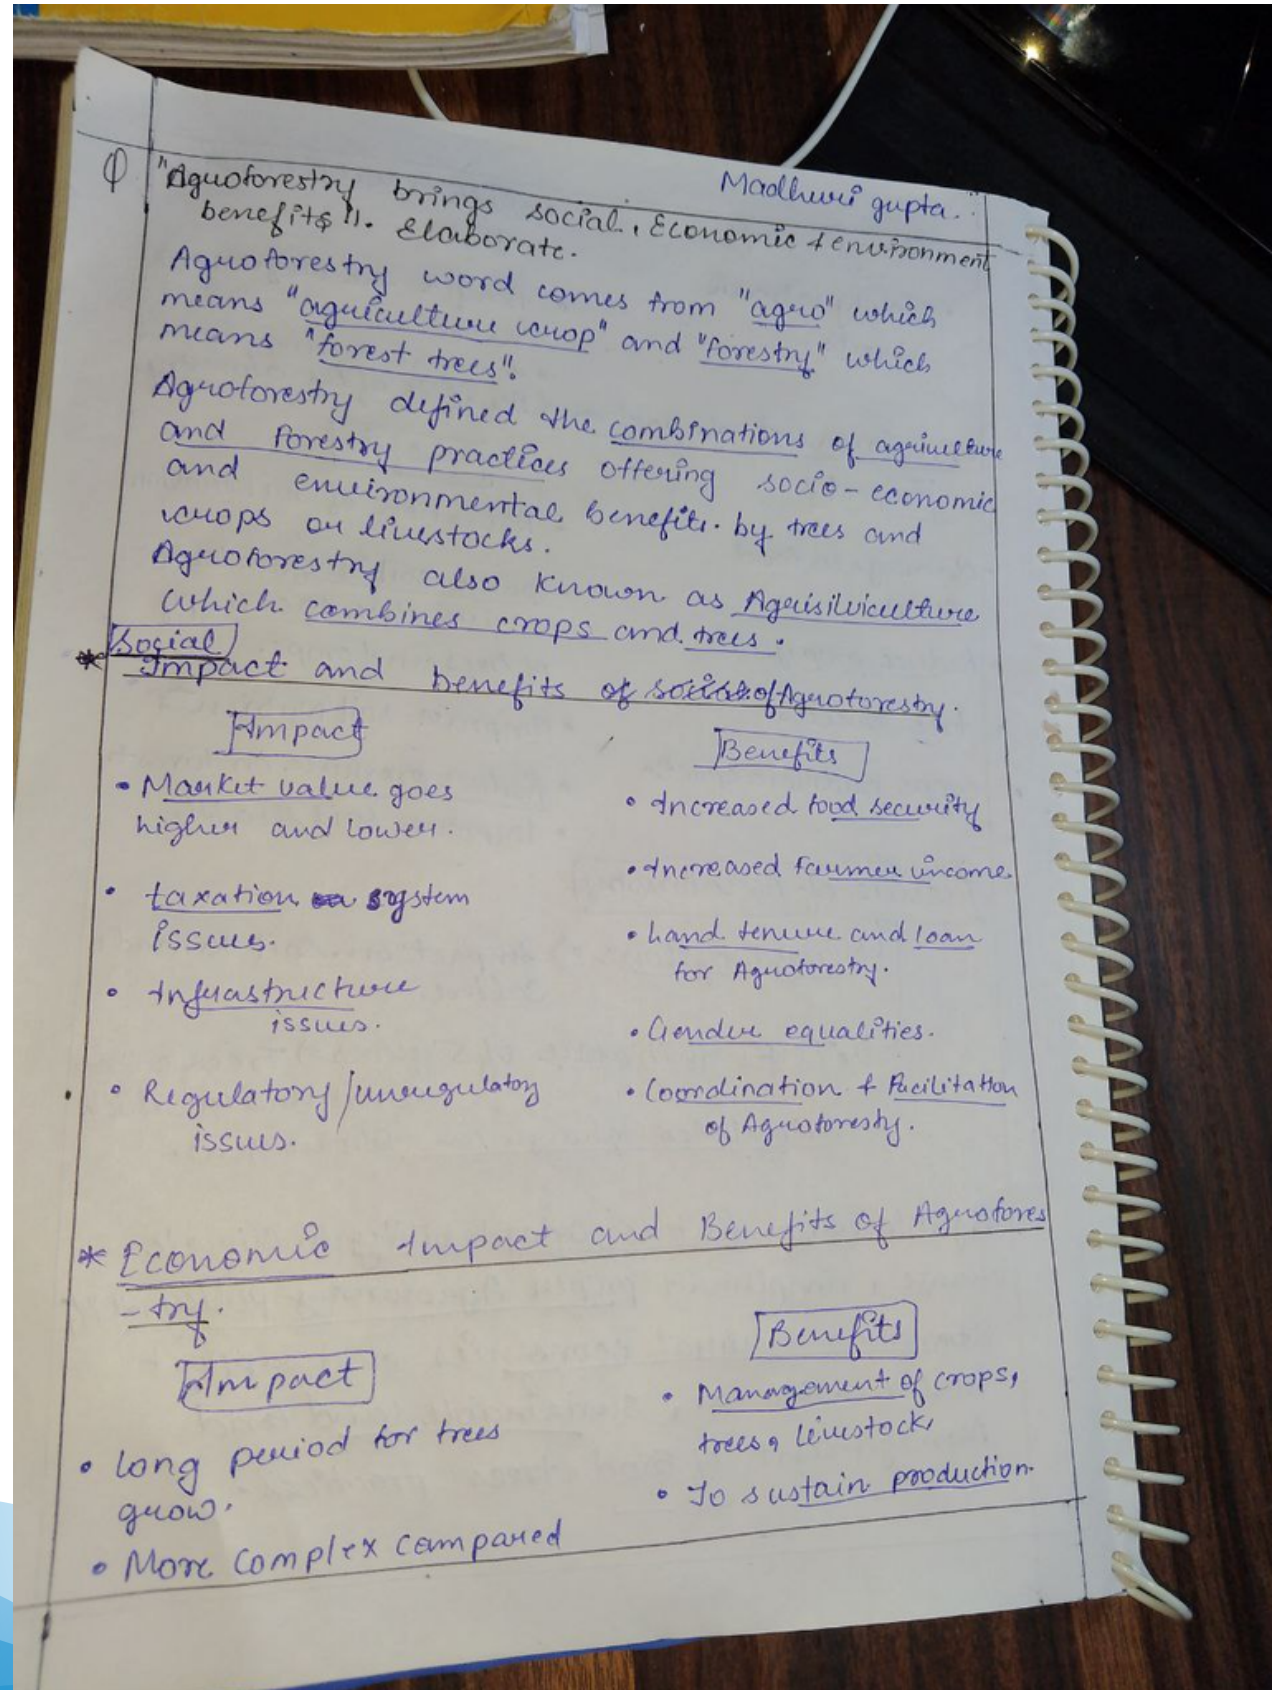 Madhuri gupta.
Q "Agroforestry brings social, Economic & environment
benefits". Elaborate.
Agroforestry word comes from "agro" which
means "agriculture crop" and "forestry" which
means "forest trees".
Agroforestry defined the combinations of agriculture
and forestry practices offering socio-economic
and environmental benefits. by trees and
crops or livestocks.
Agroforestry also known as Agrisilviculture
which combines crops and trees.
Social
* Impact and benefits of of Agroforestry.
Impact
Benefits
• Market value goes
higher and lower.
• taxation system
issues.
• Infrastructure
issues.
• Regulatory/unregulatory
issues.
• Increased food security
• Increased farmer income
• Land tenure and loan
for Agroforestry.
• Gender equalities.
• Coordination & Facilitation
of Agroforesty.
* Economic Impact and Benefits of Agrofores
-try.
Impact
Benefits
• long period for trees
grow.
• More complex compared
• Management of crops,
trees, livestock,
• To sustain production.